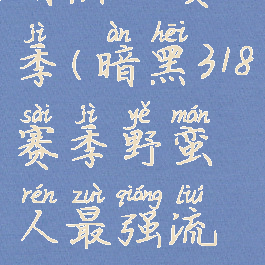 jì àn hēi
季(暗黑318
sài jì yě mán
赛季野蛮
rén zuì qiáng liú
人最强流